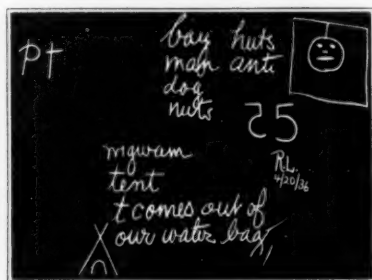 pt
bay huts
man anti
dog
nuts
25
R.L.
4/20/36
mgwam
tent
t comes out of
our water bag